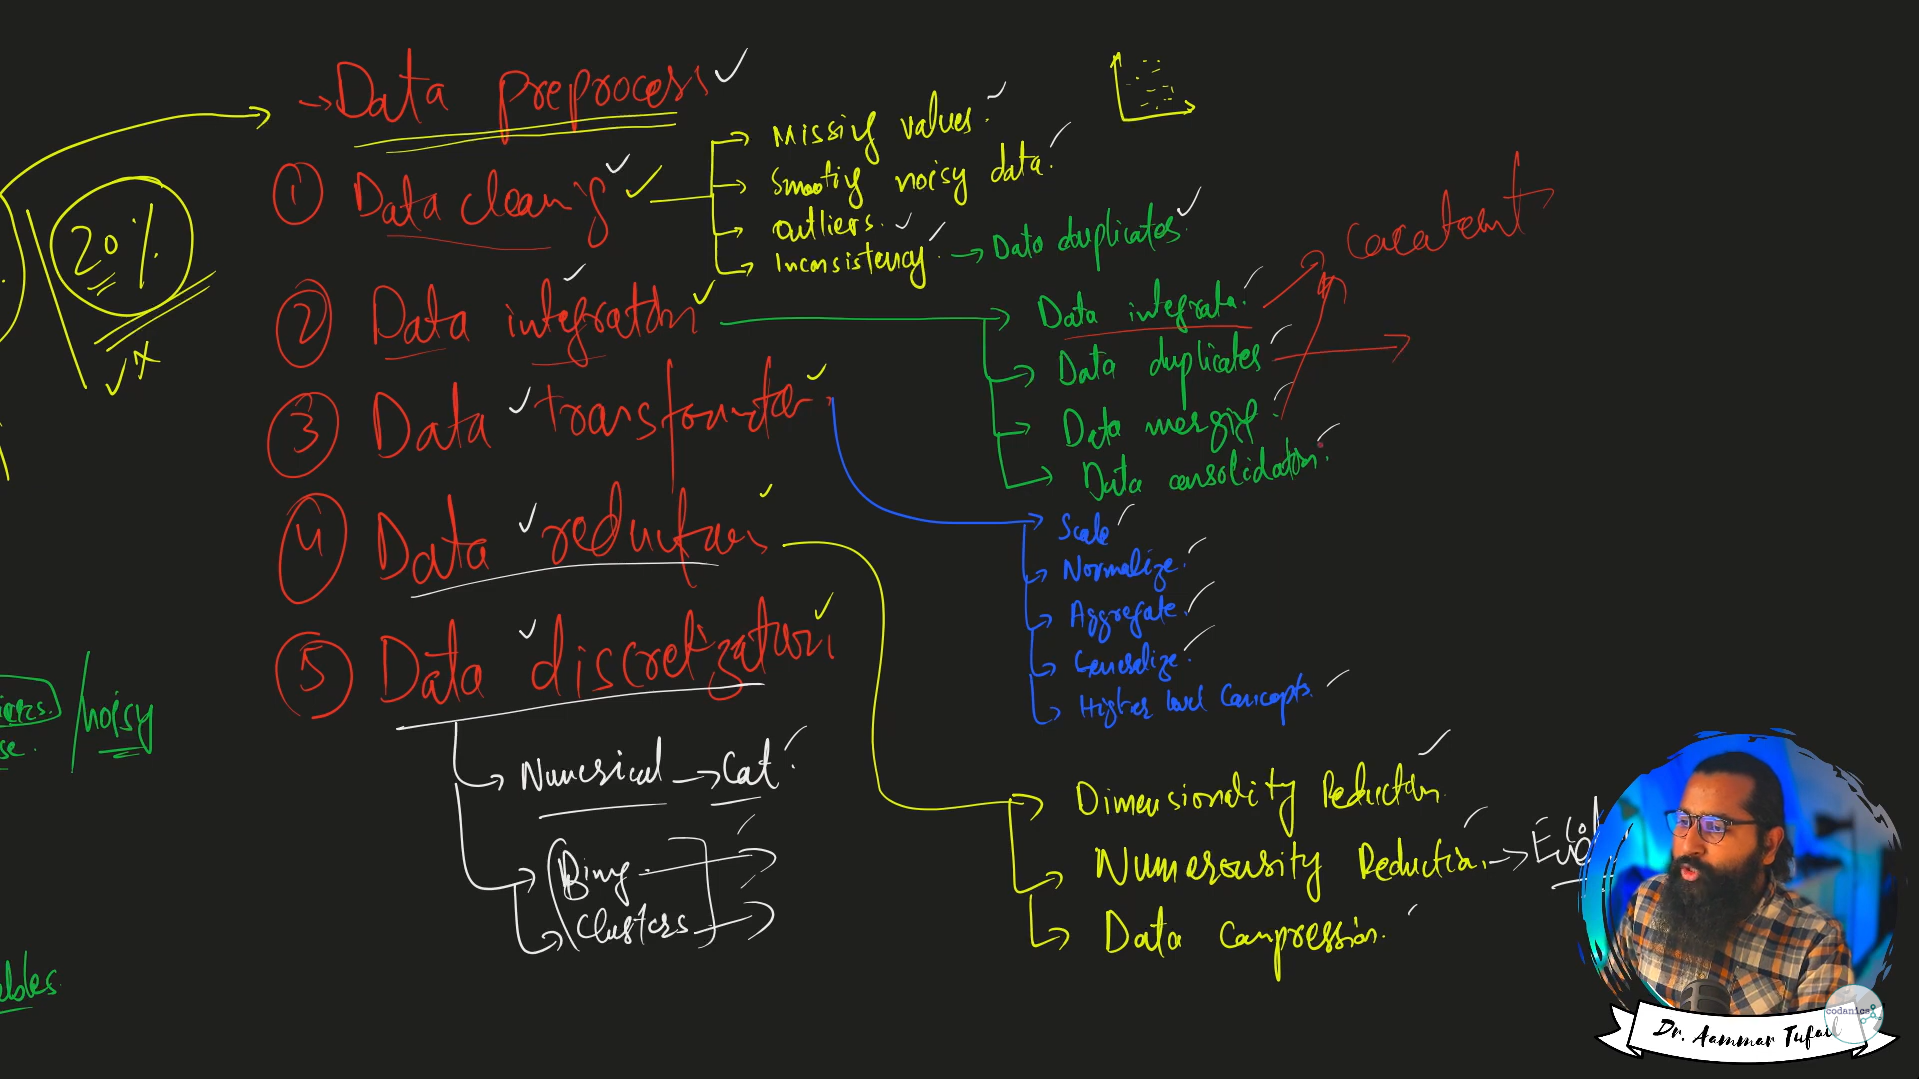 → Data preprocess ✓
20%
✓ x
① Data cleaning ✓ ✓
→ Missing values. ✓
→ Smooting noisy data.
→ Outliers. ✓
→ Inconsistency. → Data duplicates. ✓
② Data integration ✓
→ Data integrate.
→ Data duplicates
→ Data merging
→ Data consolidation.
③ Data ✓ transformation ✓
→ Scale
→ Normalize.
→ Aggregate.
→ Generalize.
→ Higher level Concepts.
④ Data ✓ reduction ✓
→ Dimensionality Reduction
→ Numerousity Reduction →
→ Data compression.
⑤ Data ✓ discretization ✓
→ Numerical → Cat.
→ Bing
→ Clusters
noisy
Dr. Aammar Tufail
codanics